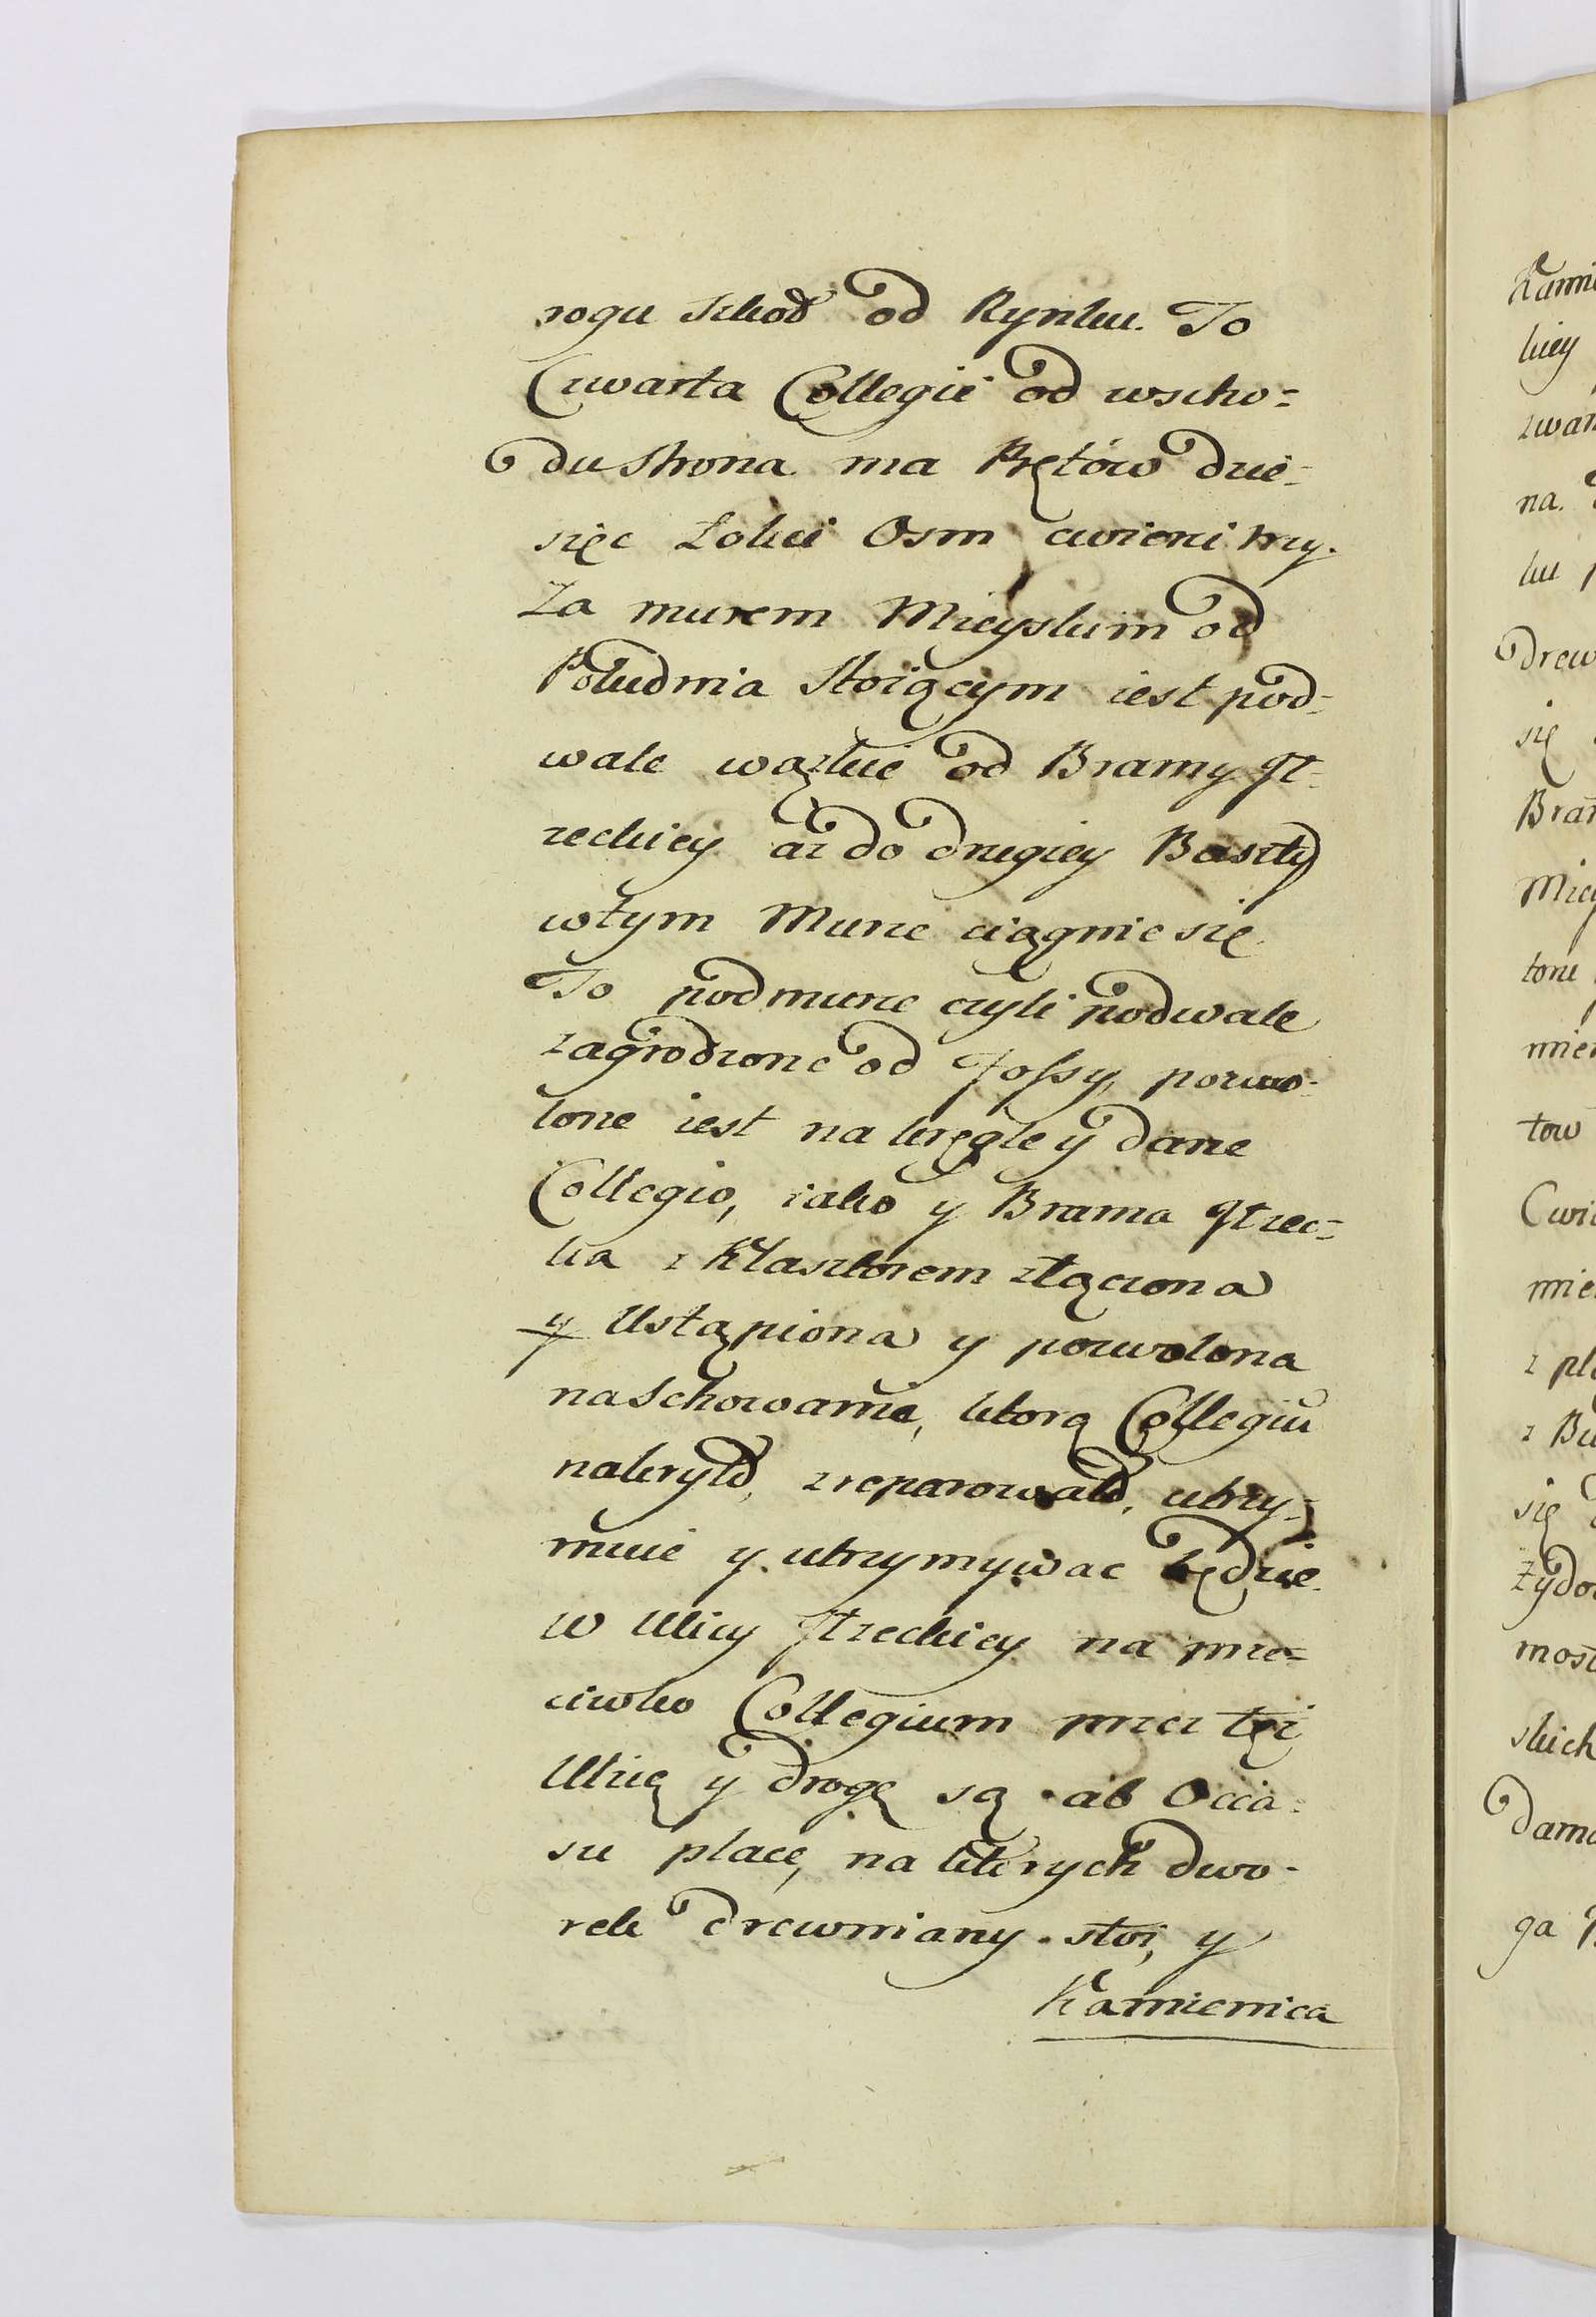 rogu szkoł od Rynku. To
Czwarta Collegii od wscho=
du strona ma Prętów dzie=
sięć Łokci Osm cwierci trzy.
Za murem Mieyskim od
Południa stoiącym iest pod=
wale wązkie od Bramy Gr=
zeckiey aż do drugiey Baszty
w tym Murze ciągnie się.
To podmurze czyli podwale
zagrodzone od Fossy, pozwo=
lone iest na kręgle y dane
Collegio, iako y Brama Grzec=
ka z Klasztorem złączona
y Ustąpiona y pozwolona
na Schowanie, ktorą Collegiū
nakryło, zreparowało, utrzy=
muie y utrzymywac będzie.
w Ulicy Grzeckiey na prze=
ciwko Collegium przez tęż
Ulicę y drogę są ab Occa=
su place, na ktorych dwo=
rek drewniany stoi, y
Kamienica
Kamie
kiey
zwan
na.
ku p
drew
się
Bram
Miey
tow
Cwie
mie
z pla
z Bu
się
Żydo
most
skich
dama
ga